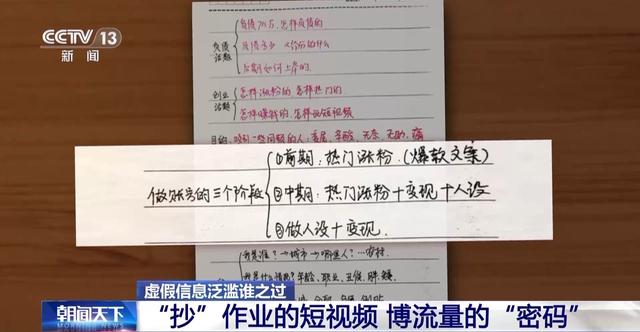 CCTV 13
新闻
负债70万,怎样负债的
负债
话题
负债多少
后期如何上岸的
创业
话题
怎样涨粉的 怎样热门的
怎样赚钱的,怎样做短视频
目的:吸引一些同频的人:
做账号的三个阶段
①前期:热门涨粉.(爆款文案)
②中期:热门涨粉+变现+人设
③做人设+变现.
我是谁?→城市→哪里人?…农村.
年龄、职业、
虚假信息泛滥谁之过
朝闻天下
“抄”作业的短视频 博流量的“密码”